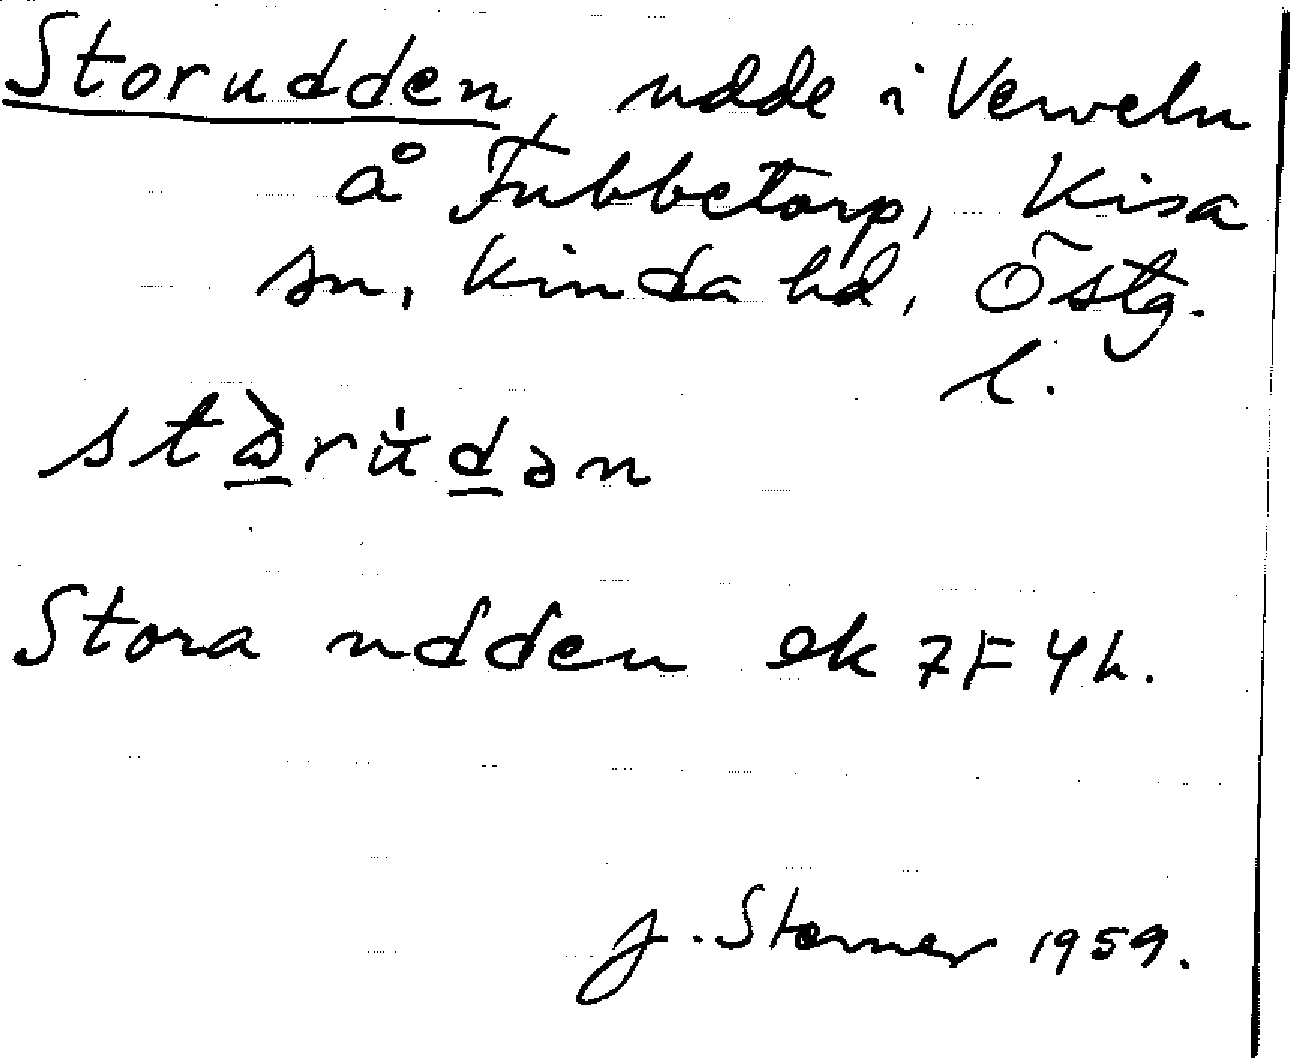 Storudden, udde i Verveln
å Fubbetorp, Kisa
sn, Kinda hd, Östg.
l.
Stora udden ek 7F 4h.
J. Sterner 1959.